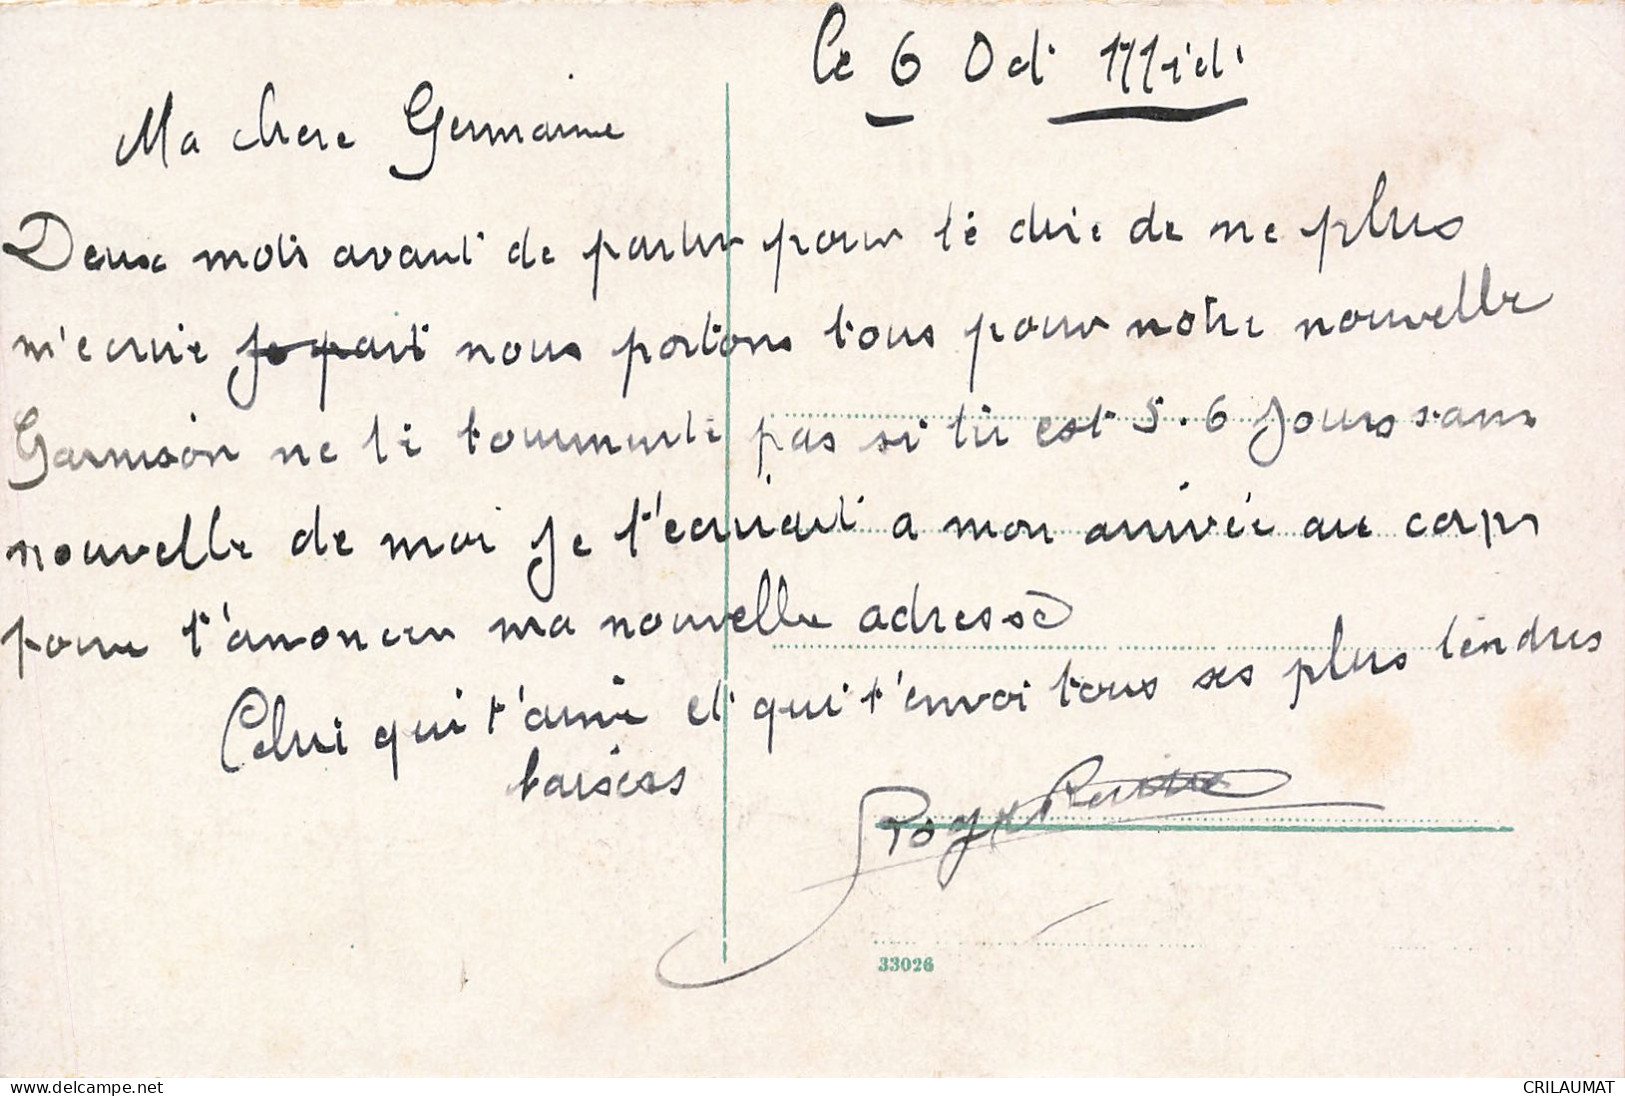 le 6 Oct Midi
Ma chere Germaine
Deux mots avant de partir pour te dire de ne plus
m'ecrire je part nous partons tous pour notre nouvelle
Garnison ne te tourmente pas si tu est 5.6 Jours sans
nouvelle de moi je t'ecrirait a mon arrivée au corps
pour t'anoncer ma nouvelle adresse
Celui qui t'aime et qui t'envoi tous ses plus tendres
baisers
33026
delcampe.net
CRILAUMAT